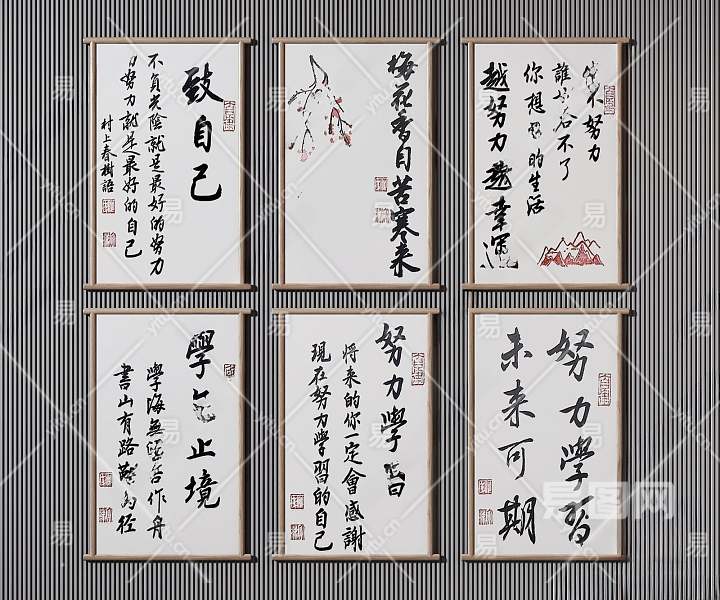 致自己
不負光陰就是最好的努力
努力就是最好的自己
村上春樹語
梅花香自苦寒来
不努力
誰不了
你想的生活
越努力越幸運
學止境
學海無作舟
書山有路为径
努力學
将来的你一定會感謝
現在努力學習的自己
努力學習
未来可期
易图网